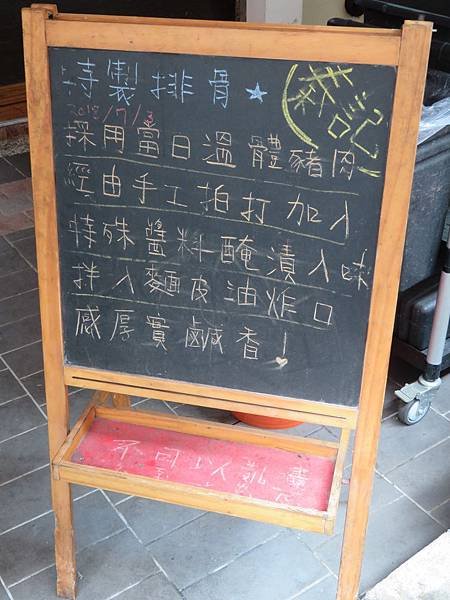 特製排骨★
蔡記
2018/7/3
採用當日溫體豬肉
經由手工拍打加入
特殊醬料醃漬入味
拌入麵皮油炸口
感厚實鹹香!
不可以